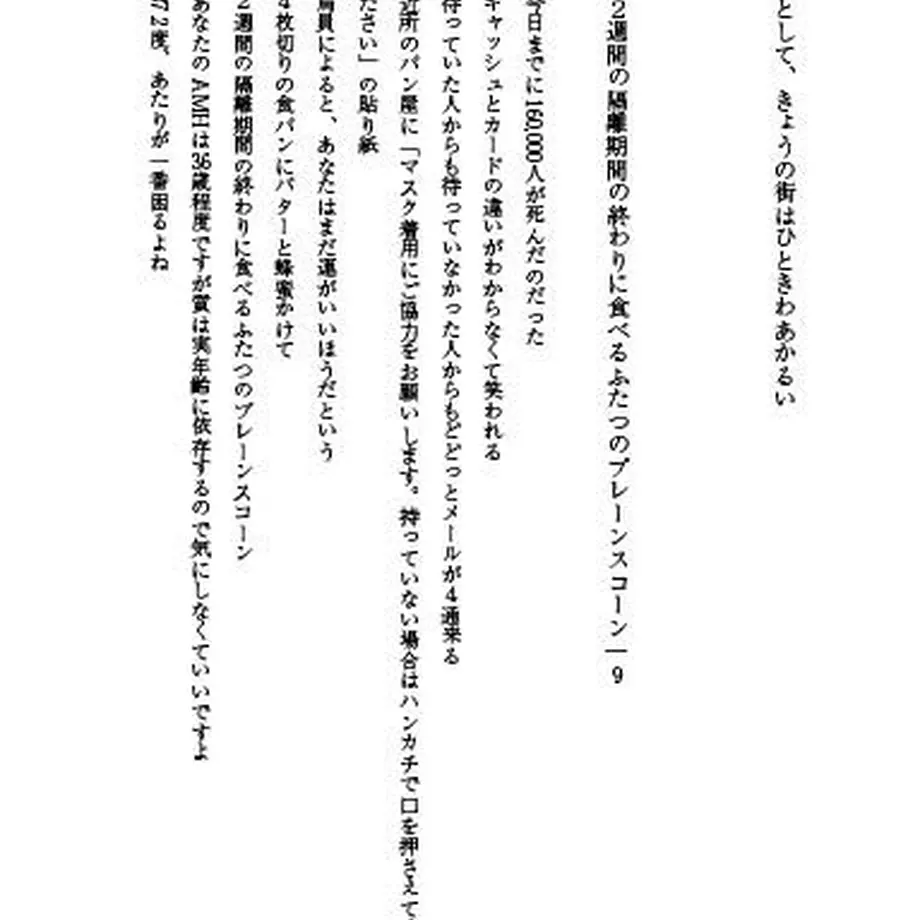 として、きょうの街はひときわあかるい
2週間の隔離期間の終わりに食べるふたつのプレーンスコーン｜9
今日までに160,000人が死んだのだった
キャッシュとカードの違いがわからなくて笑われる
待っていた人からも待っていなかった人からもどどっとメールが4通来る
近所のパン屋に「マスク着用にご協力をお願いします。持っていない場合はハンカチで口を押さえて
ださい」の貼り紙
員によると、あなたはまだ運がいいほうだという
4枚切りの食パンにバターと蜂蜜かけて
2週間の隔離期間の終わりに食べるふたつのプレーンスコーン
あなたのAMHは36歳程度ですが質は実年齢に依存するので気にしなくていいです
7.2度、あたりが一番困るよね